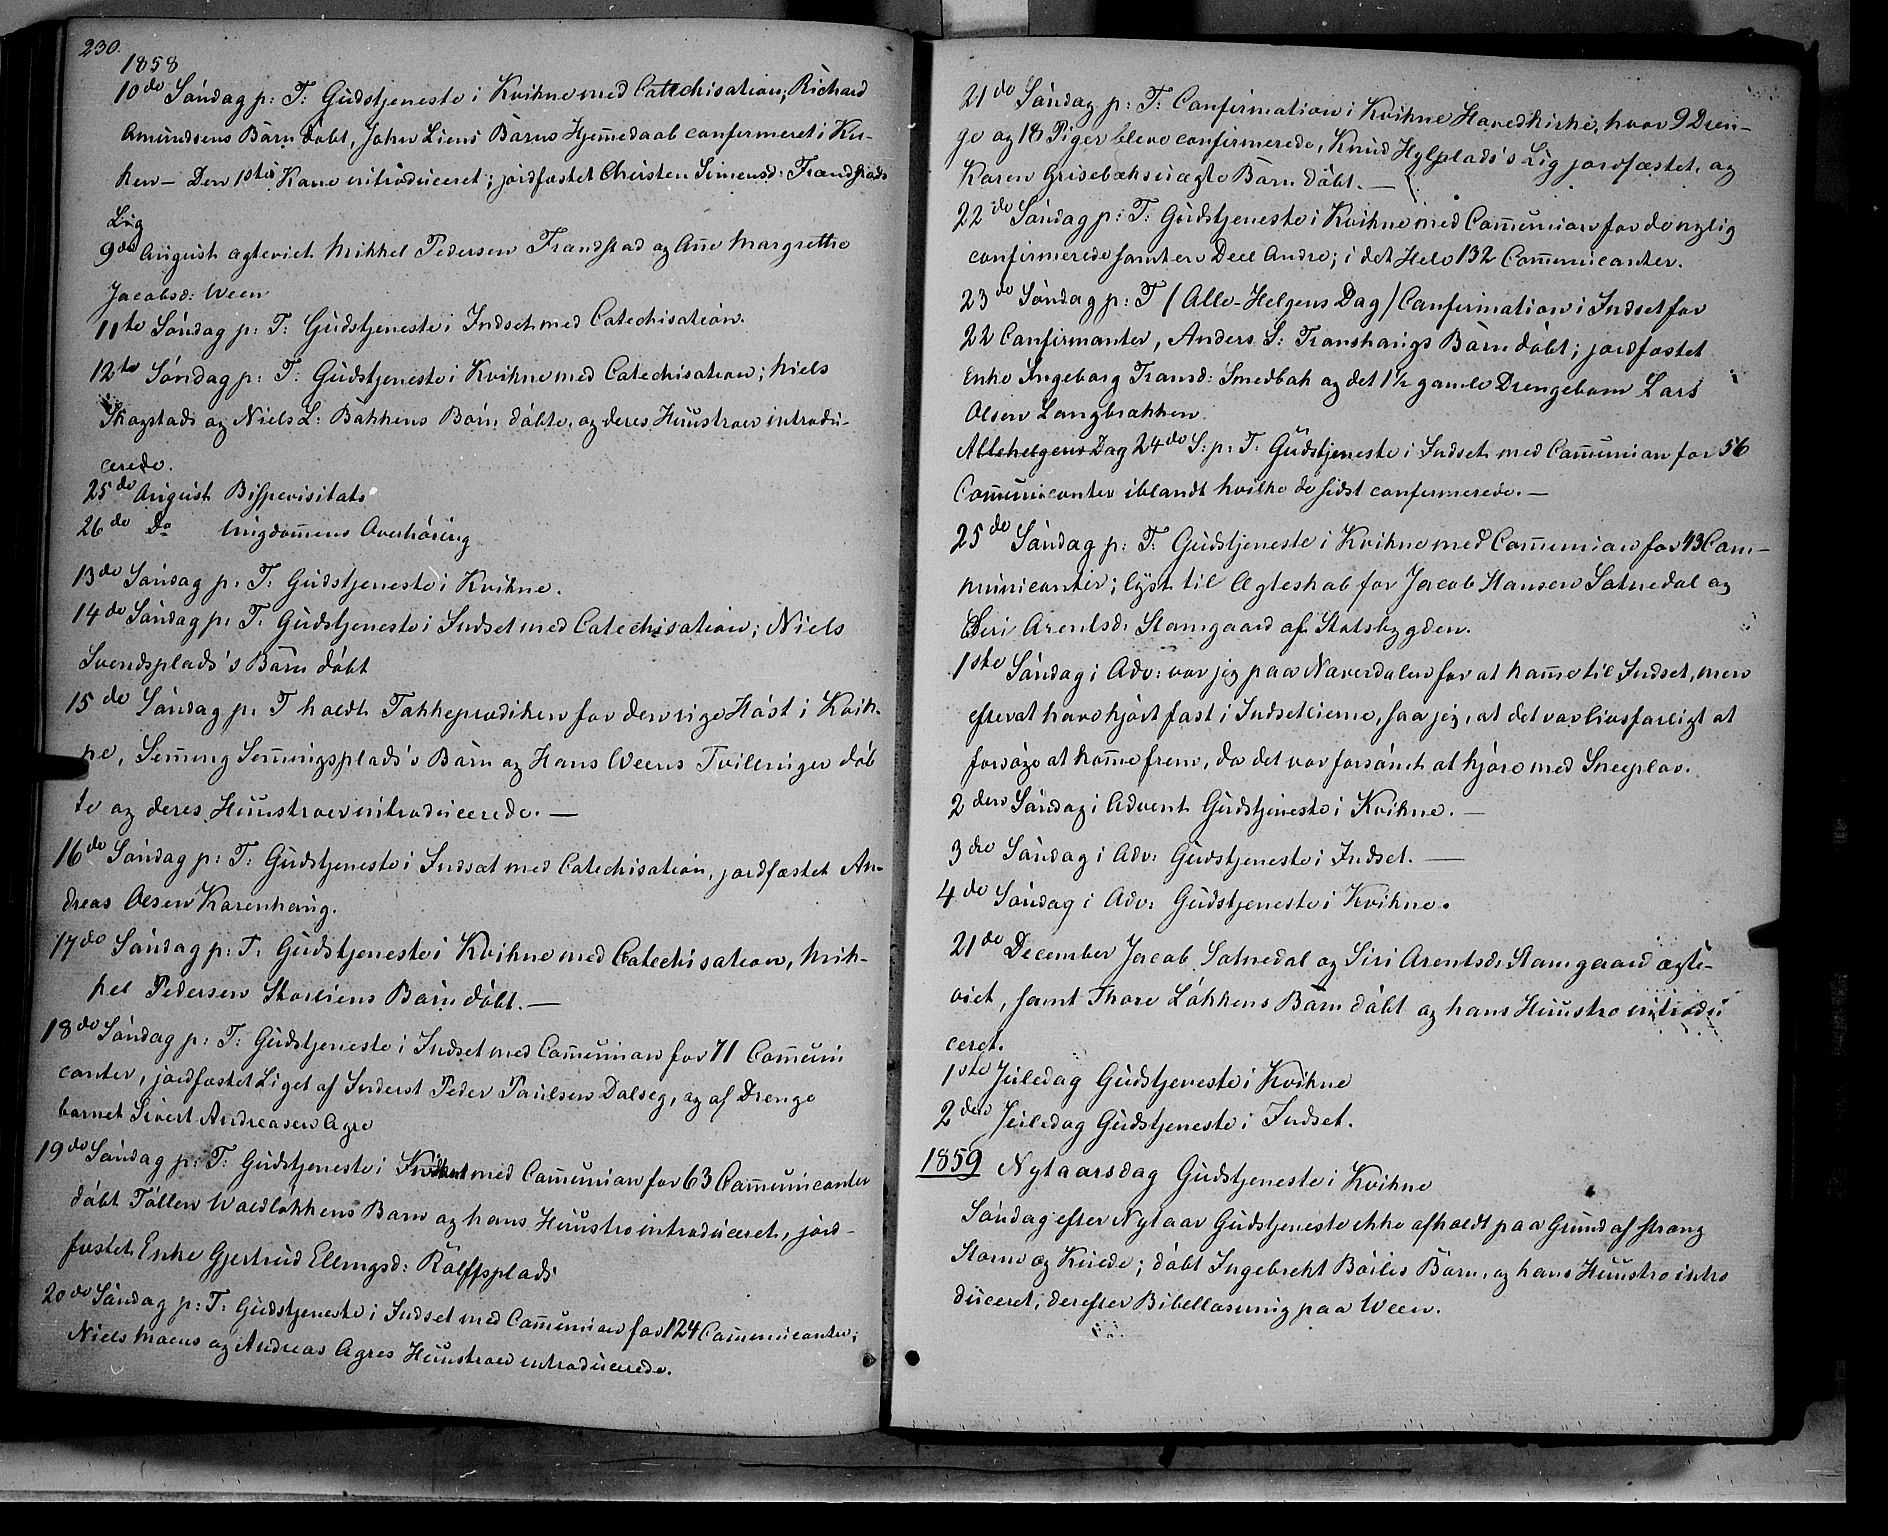 230.
1858
10de Søndag p: T: Gudstjeneste i Kvikne med Catechisation; Richard
Amundsens Barn døbt, John Liens Barns Hjemmedaab confermeret i Kir-
ken – Den 1stes Kone introduceret; jordfæstet Chirsten Simensd: Frandstads
Lig
9de August ægteviet Mikkel Pedersen Frandstad og Ane Margrethe
Jacobsd: Ween
11te Søndag p: T: Gudstjeneste i Indset med Catechisation.
12te Søndag p: T: Gudstjeneste i Kvikne med Catechisation; Niels
Skogstads og Niels L: Bakkens Børn døbte, og deres Hustruer introdu-
cerede.
25de August Bispevisitats
26de Do Ungdommens Overhøring
13de Søndag p: T: Gudstjeneste i Kvikne.
14de Søndag p: T: Gudstjeneste i Indset med Catechisation; Niels
Svendsplads's Barn døbt
15de Søndag p: T holdt Takkeprædiken for den rige Høst i Kvik-
ne, Seming Semingsplads's Barn og Hans Weens Tvillinger døb
te og deres Huustruer introducerede. —
16de Søndag p: T: Gudstjeneste i Indset med Catechisation, jordfæstet An-
dreas Olsen Karenhaug.
17de Søndag p: T: Gudstjeneste i Kvikne med Catechisation, Mik-
kel Pedersen Storliens Barn døbt. —
18de Søndag p: T: Gudstjeneste i Indset med Communion for 71 Communi
canter, jordfæstet Liget af Inderst Peder Paulsen Dalseg, og af Drenge
barnet Sivert Andreasen Agre
19de Søndag p: T: Gudstjeneste i med Communion for 63 Communicanter
døbt Tollen Woldløkkens Barn og hans Huustro introduceret, jord-
fæstet Enke Gjertrud Ellingsd: Rolffsplads
20de Søndag p: T: Gudstjeneste i Indset med Communion for 124 Communicanter;
Niels Moens og Andreas Agres Huustruer introducerede.
21de Søndag p: T: Confirmation i Kvikne Hovedkirke, hvor 9 Dren-
ge og 18 Piger bleve confirmerede, Knud Hylplads's Lig jordfæstet, og
Karen Grisebæks uægte Barn døbt. —
22de Søndag p: T: Gudstjeneste i Kvikne med Communion for de nylig
confirmerede samt en Deel Andre; i det Hele 132 Communicanter.
23de Søndag p: T / Alle-Helgens Dag / Confirmation i Indset for
22 Confirmanter, Anders S: Tronshaugs Barn døbt; jordfæstet
Enke Ingeborg Tronsd: Smedbak og det 1½ gamle Drengebarn Lars
Olsen Langbrækken
Allehelgens Dag 24de S: p: T: Gudstjeneste i Indset med Communion for 56
Communicanter iblandt hvilke de sidst confermerede. —
25de Søndag p: T: Gudstjeneste i Kvikne med Communion for 43 Com-
municanter; lyst til Ægteskab for Jacob Hansen Sotnedal og
Siri Arentsd: Stamgaard af Statsbygden.
1ste Søndag i Adv: var jeg paa Naverdalen for at komme til Indset, men
efter at have kjørt fast i Indsetlierne, saa jeg, at det var livsfarligt at
forsøge at komme frem, da det var forsømt at kjøre med Sneeplov.
2den Søndag i Advent Gudstjeneste i Kvikne. —
3die Søndag i Adv: Gudstjeneste i Indset. —
4de Søndag i Adv: Gudstjeneste i Kvikne.
21de December Jacob Sotnedal og Siri Arentsd: Stamgaard ægte-
viet, samt Thore Løkkens Barn døbt og hans Huustro introdu
ceret.
1ste Juledag Gudstjeneste i Kvikne
2den Juledag Gudstjeneste i Indset.
1859 Nytaarsdag Gudstjeneste i Kvikne
Søndag efter Nytaar Gudstjeneste ikke afholdt paa Grund af streng
Storm og Kulde; døbt Ingebrekt Bøilis Barn, og hans Huustro intro
duceret; derefter Bibellæsning paa Ween.